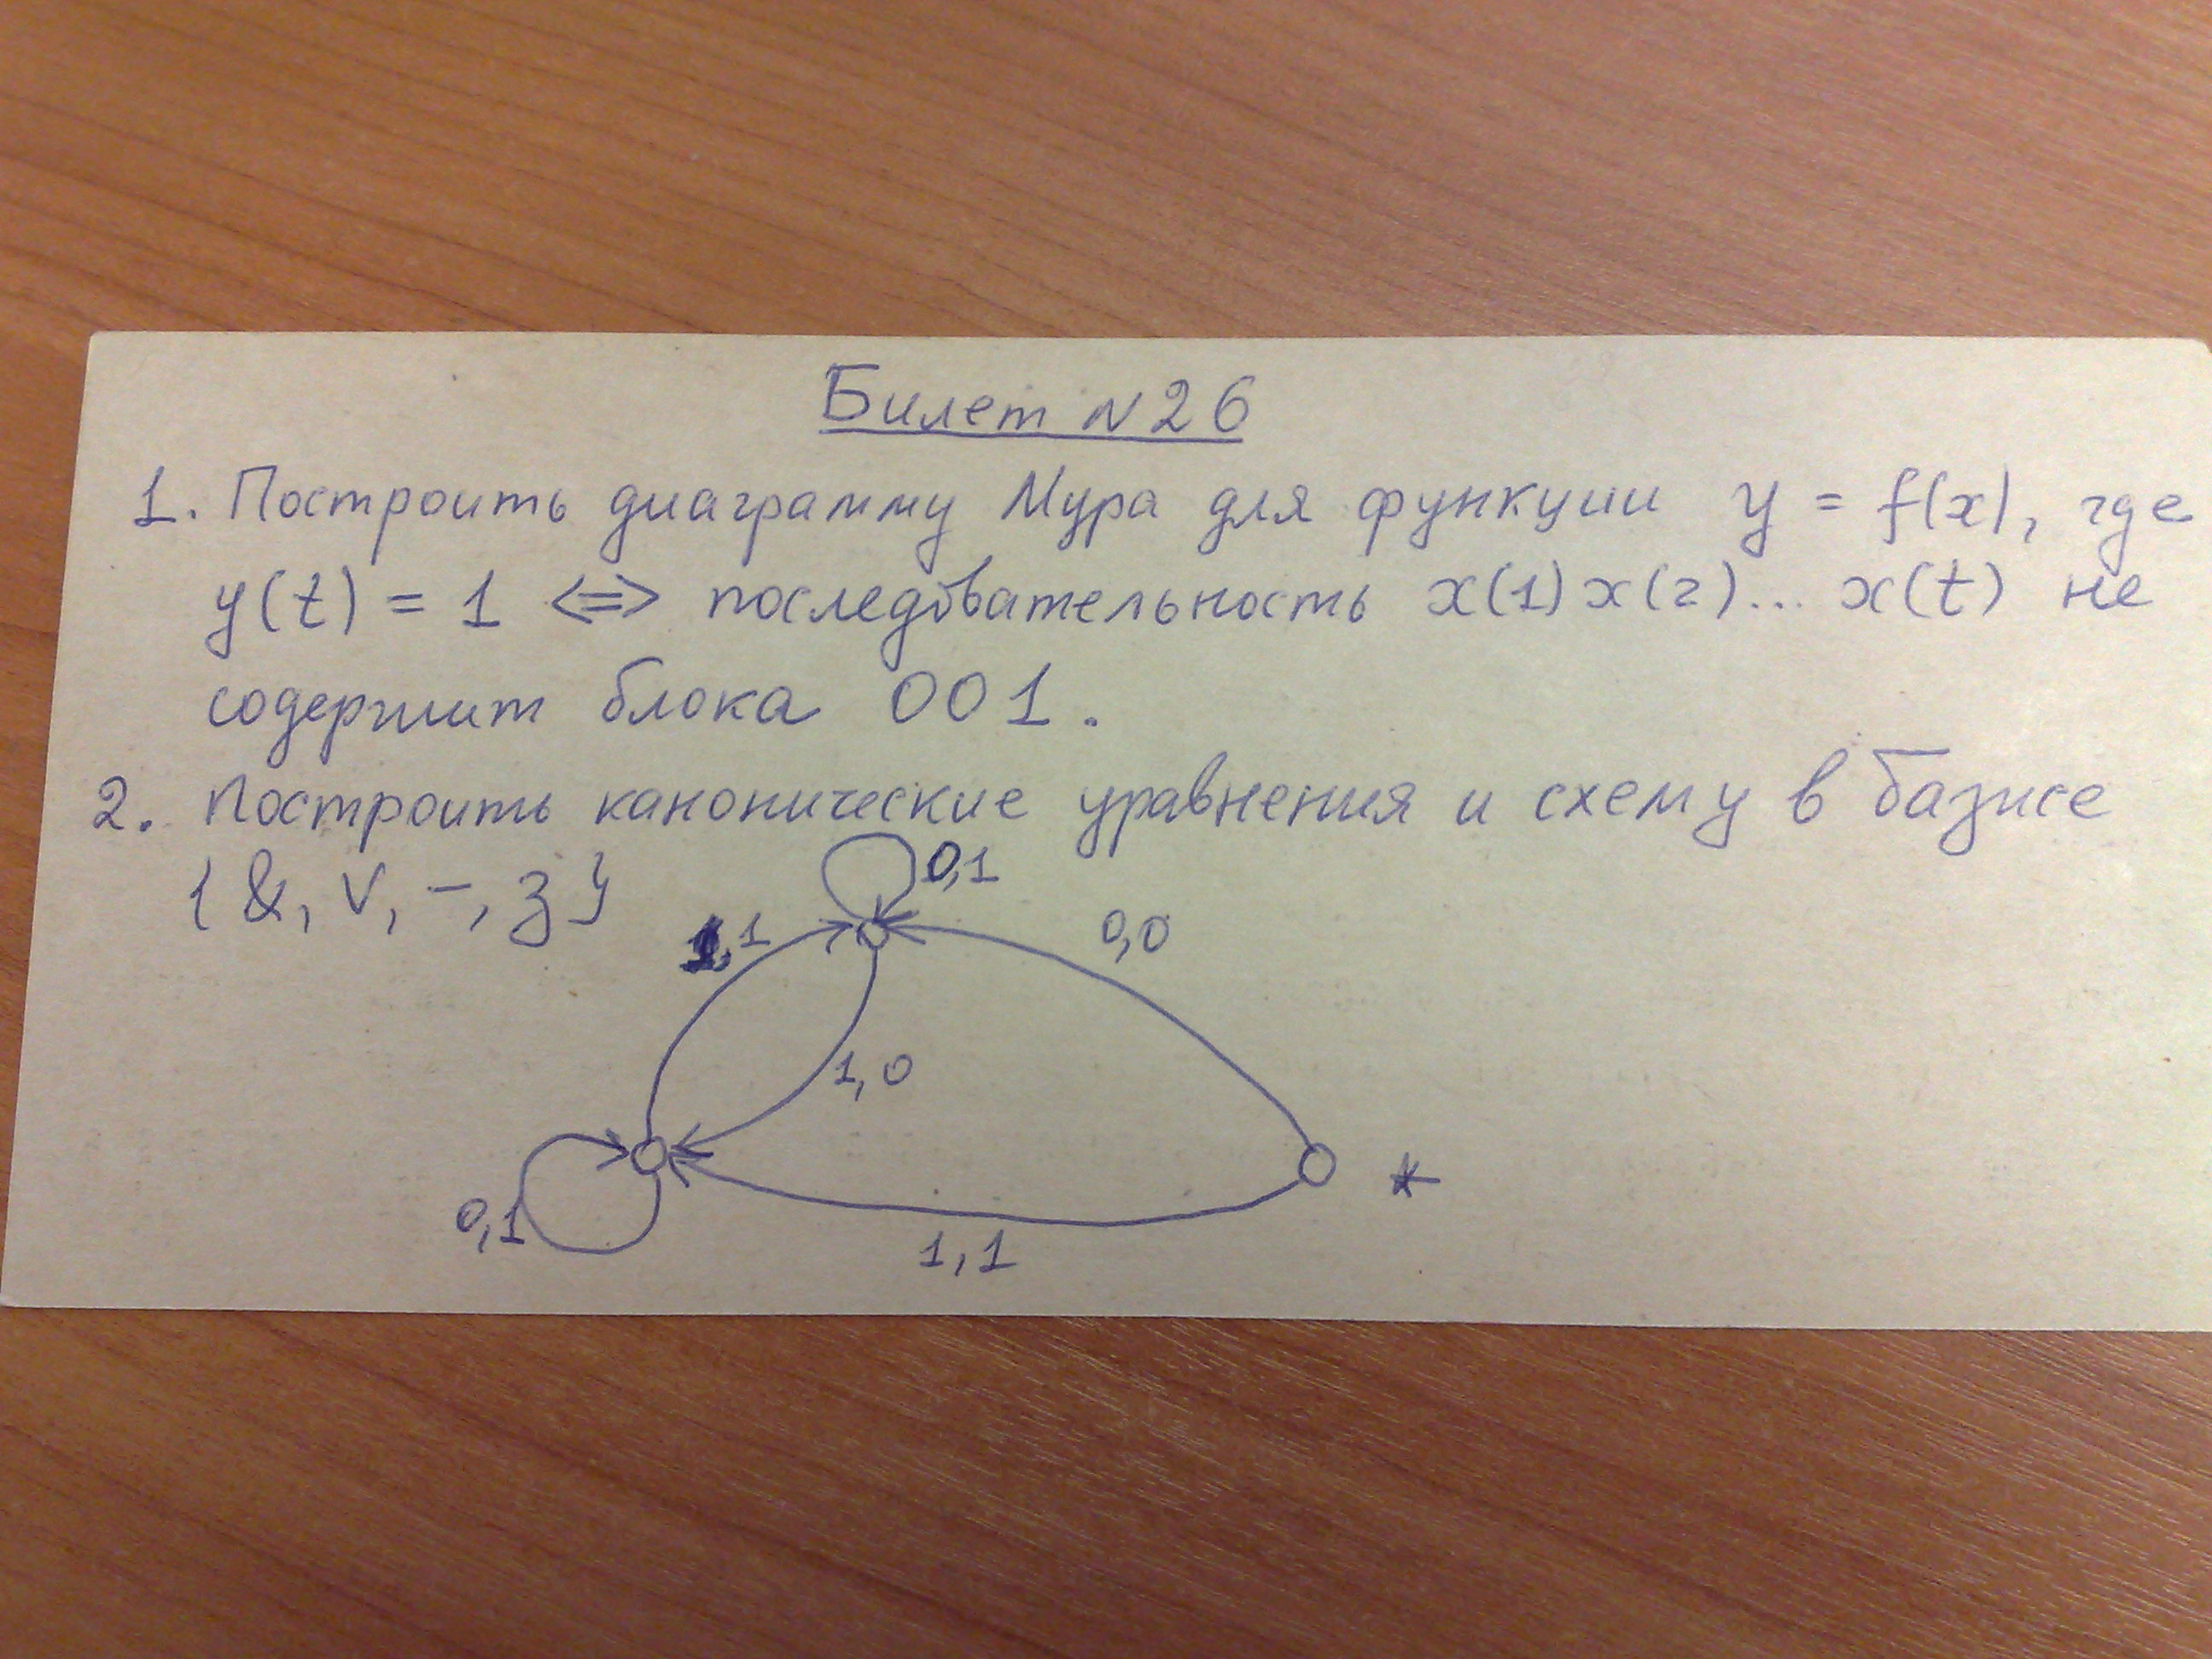 Билет N26
1. Построить диаграмму Мура для функции y = f(x), где
y(t) = 1 <=> последовательность x(1)x(2)... x(t) не
содержит блока 001.
2. Построить канонические уравнения и схему в базисе
{&, V, –, з}
0,1
1,1
0,0
1,0
0,1
*
1,1